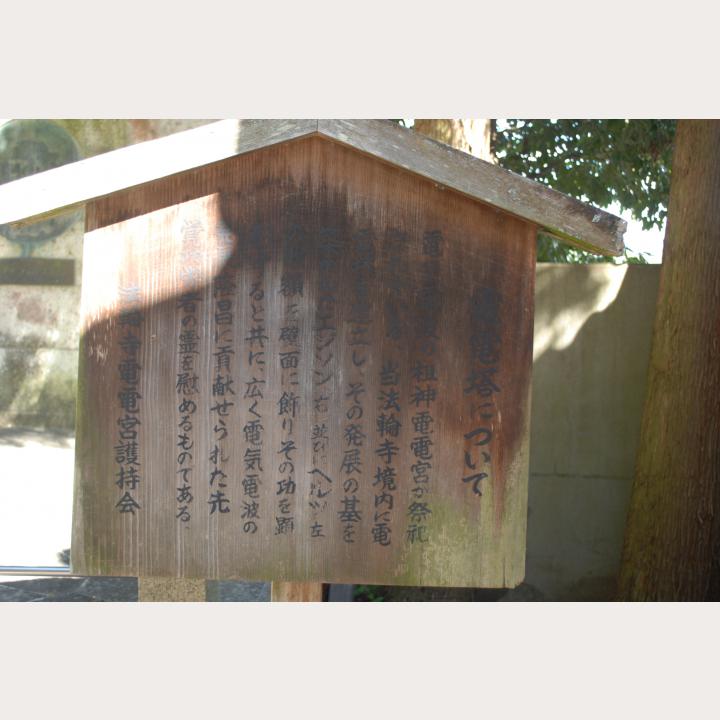 電電塔について
電 の祖神電電宮が祭祀
当法輪寺境内に電
建立し、その発展の基を
エジソン(右)並びにヘルツ(左
額を壁面に飾りその功を顕
ると共に、広く電気電波の
昌に貢献せられた先
覚 者の霊を慰めるものである、
法輪寺電電宮護持会